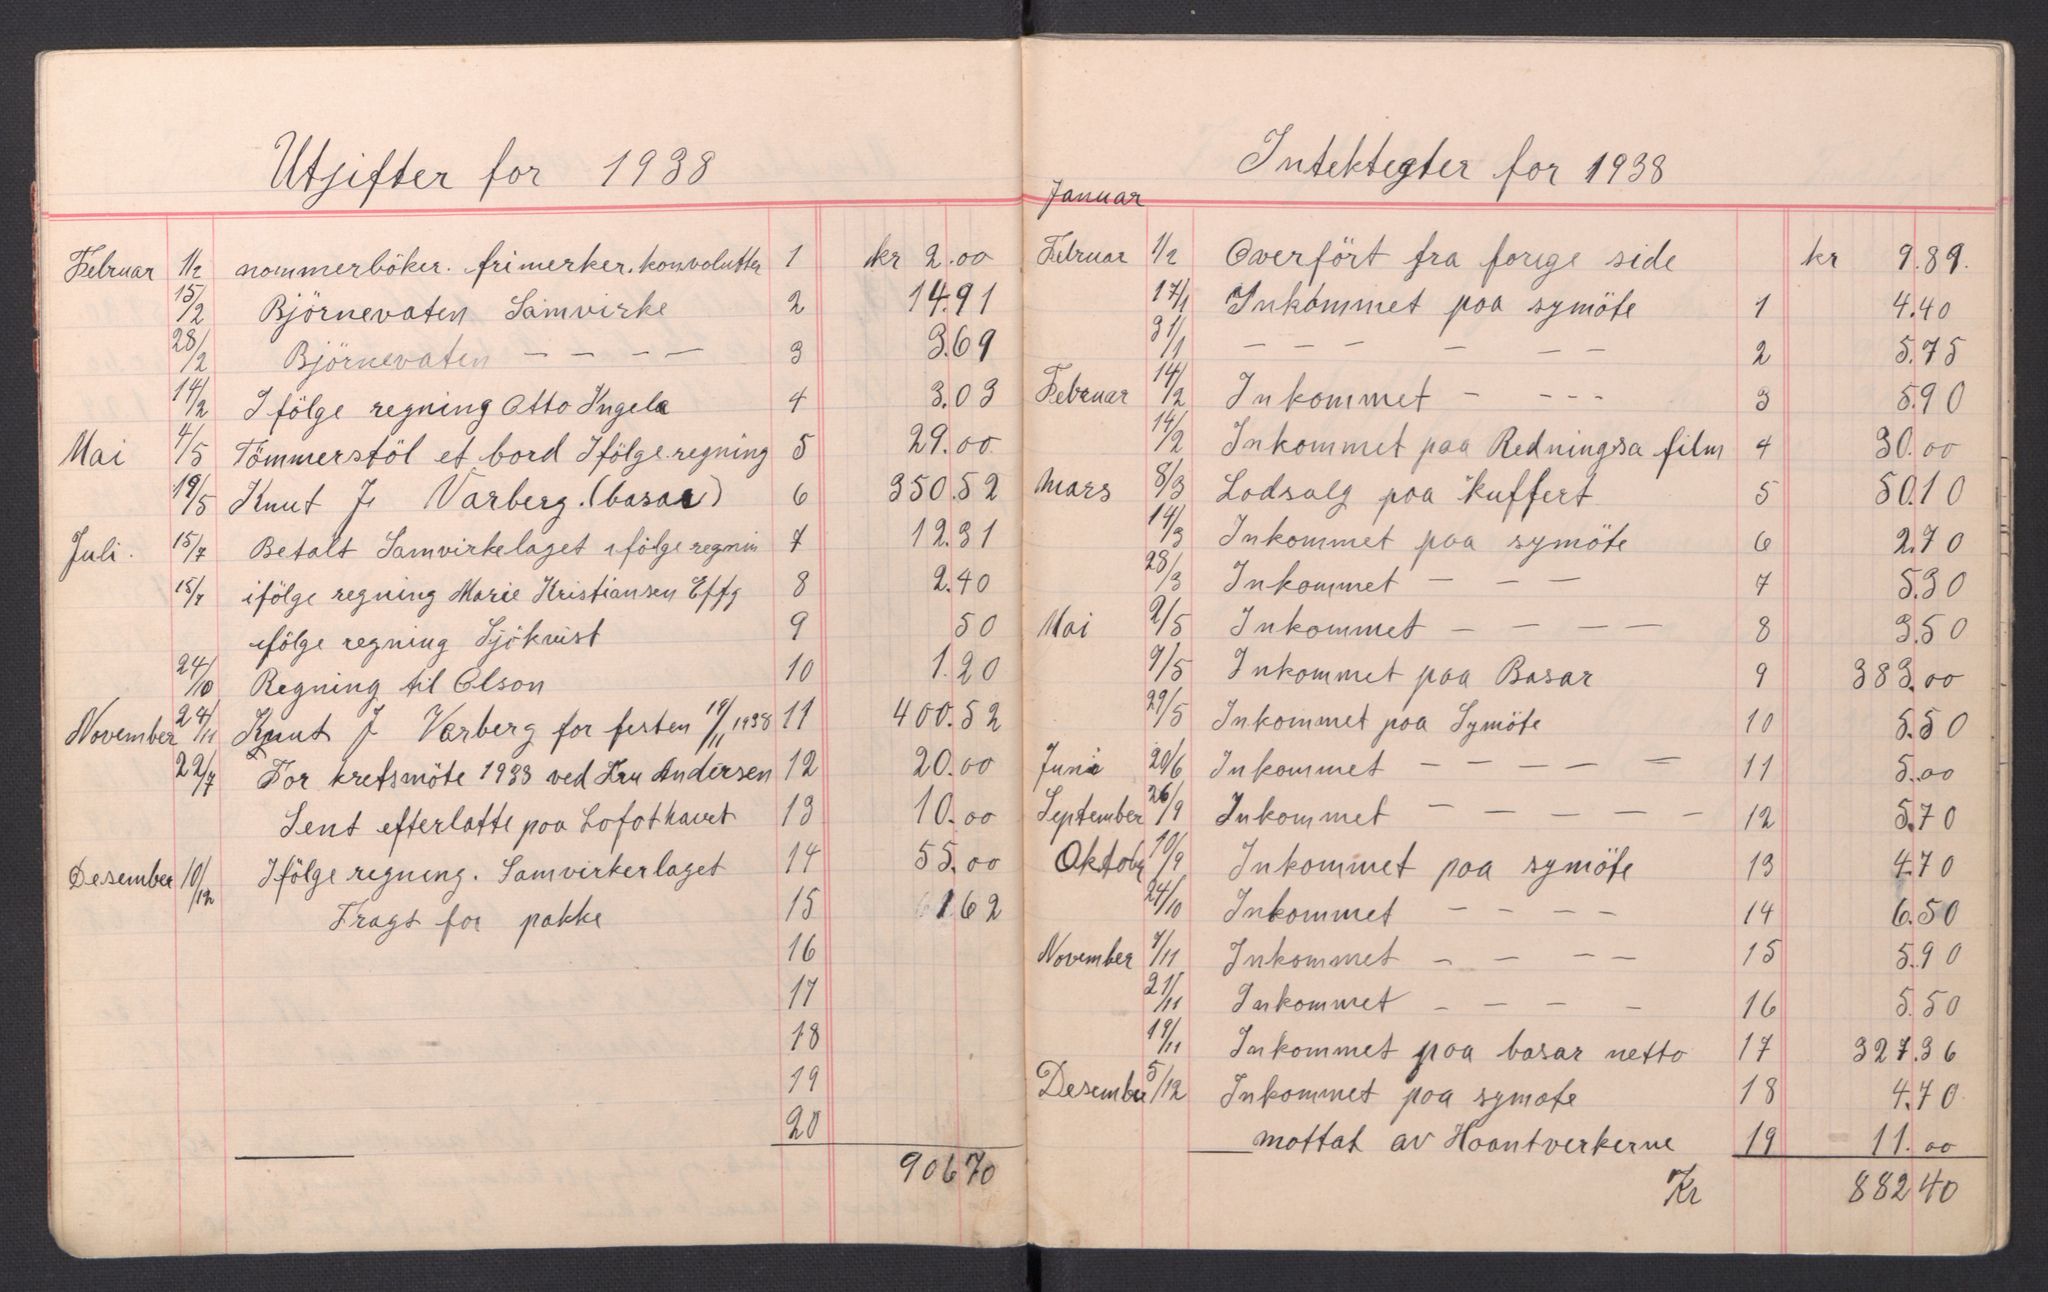 Utjifter for 1938
Februar 1/2 nommerböker. frimerker. konvolutter 1 kr 2.00
15/2 Björnevaten Samvirke 2 14.91
28/2 Björnevaten — — — — 3 3.69
14/2 Ifölge regning Otto Ingela 4 3.03
Mai 4/5 Tömmerstöl et bord Ifölge regning 5 29.00
19/5 Knut J. Varberg. (basar) 6 350.52
Juli. 15/7 Betalt Samvirkelaget ifölge regnin 7 12.31
15/7 ifölge regning Marie Kristiansen Effg 8 2.40
ifölge regning Sjökvist 9 50
24/10 Regning til Olson 10 1.20
November 24/11 Knut J Varberg for festen 19/11 1938 11 400.52
22/7 For kretsmöte 1933 ved Fru Andersen 12 20.00
Sent efterlatte paa Lofothavet 13 10.00
Desember 10/12 Ifölge regning. Samvirkerlaget 14 55.00
Fragt for pakke 15 1.62
16
17
18
19
20
906 70
Intektegter for 1938
Januar
Februar 1/2 Overfört fra forige side kr 9.89.
17/1 Inkommet paa symöte 1 4.40
31/1 — — — — — — 2 5.75
Februar 14/2 Inkommet - - - - 3 5.90
14/2 Inkommet paa Redningsa film 4 30.00
Mars 8/3 Lodsalg paa kuffert 5 50.10
14/3 Inkommet paa symöte 6 2.70
28/3 Inkommet — — — 7 5.30
Mai 2/5 Inkommet — — — — 8 3.50
9/5 Inkommet paa Basar 9 383.00
29/5 Inkommet paa Symöte 10 5.50
Juni 20/6 Inkommet — — — — — 11 5.00
September 26/9 Inkommet — — — — — 12 5.70
Oktober 10/9 Inkommet paa symöte 13 4.70
24/10 Inkommet — — — — 14 6.50
November 7/11 Inkommet — — — — 15 5.90
21/11 Inkommet — — — — 16 5.50
19/11 Inkommet paa basar netto 17 327.36
Desember 5/12 Inkommet paa symote 18 4.70
mottat av Haantverkerne 19 11.00
Kr 882 40